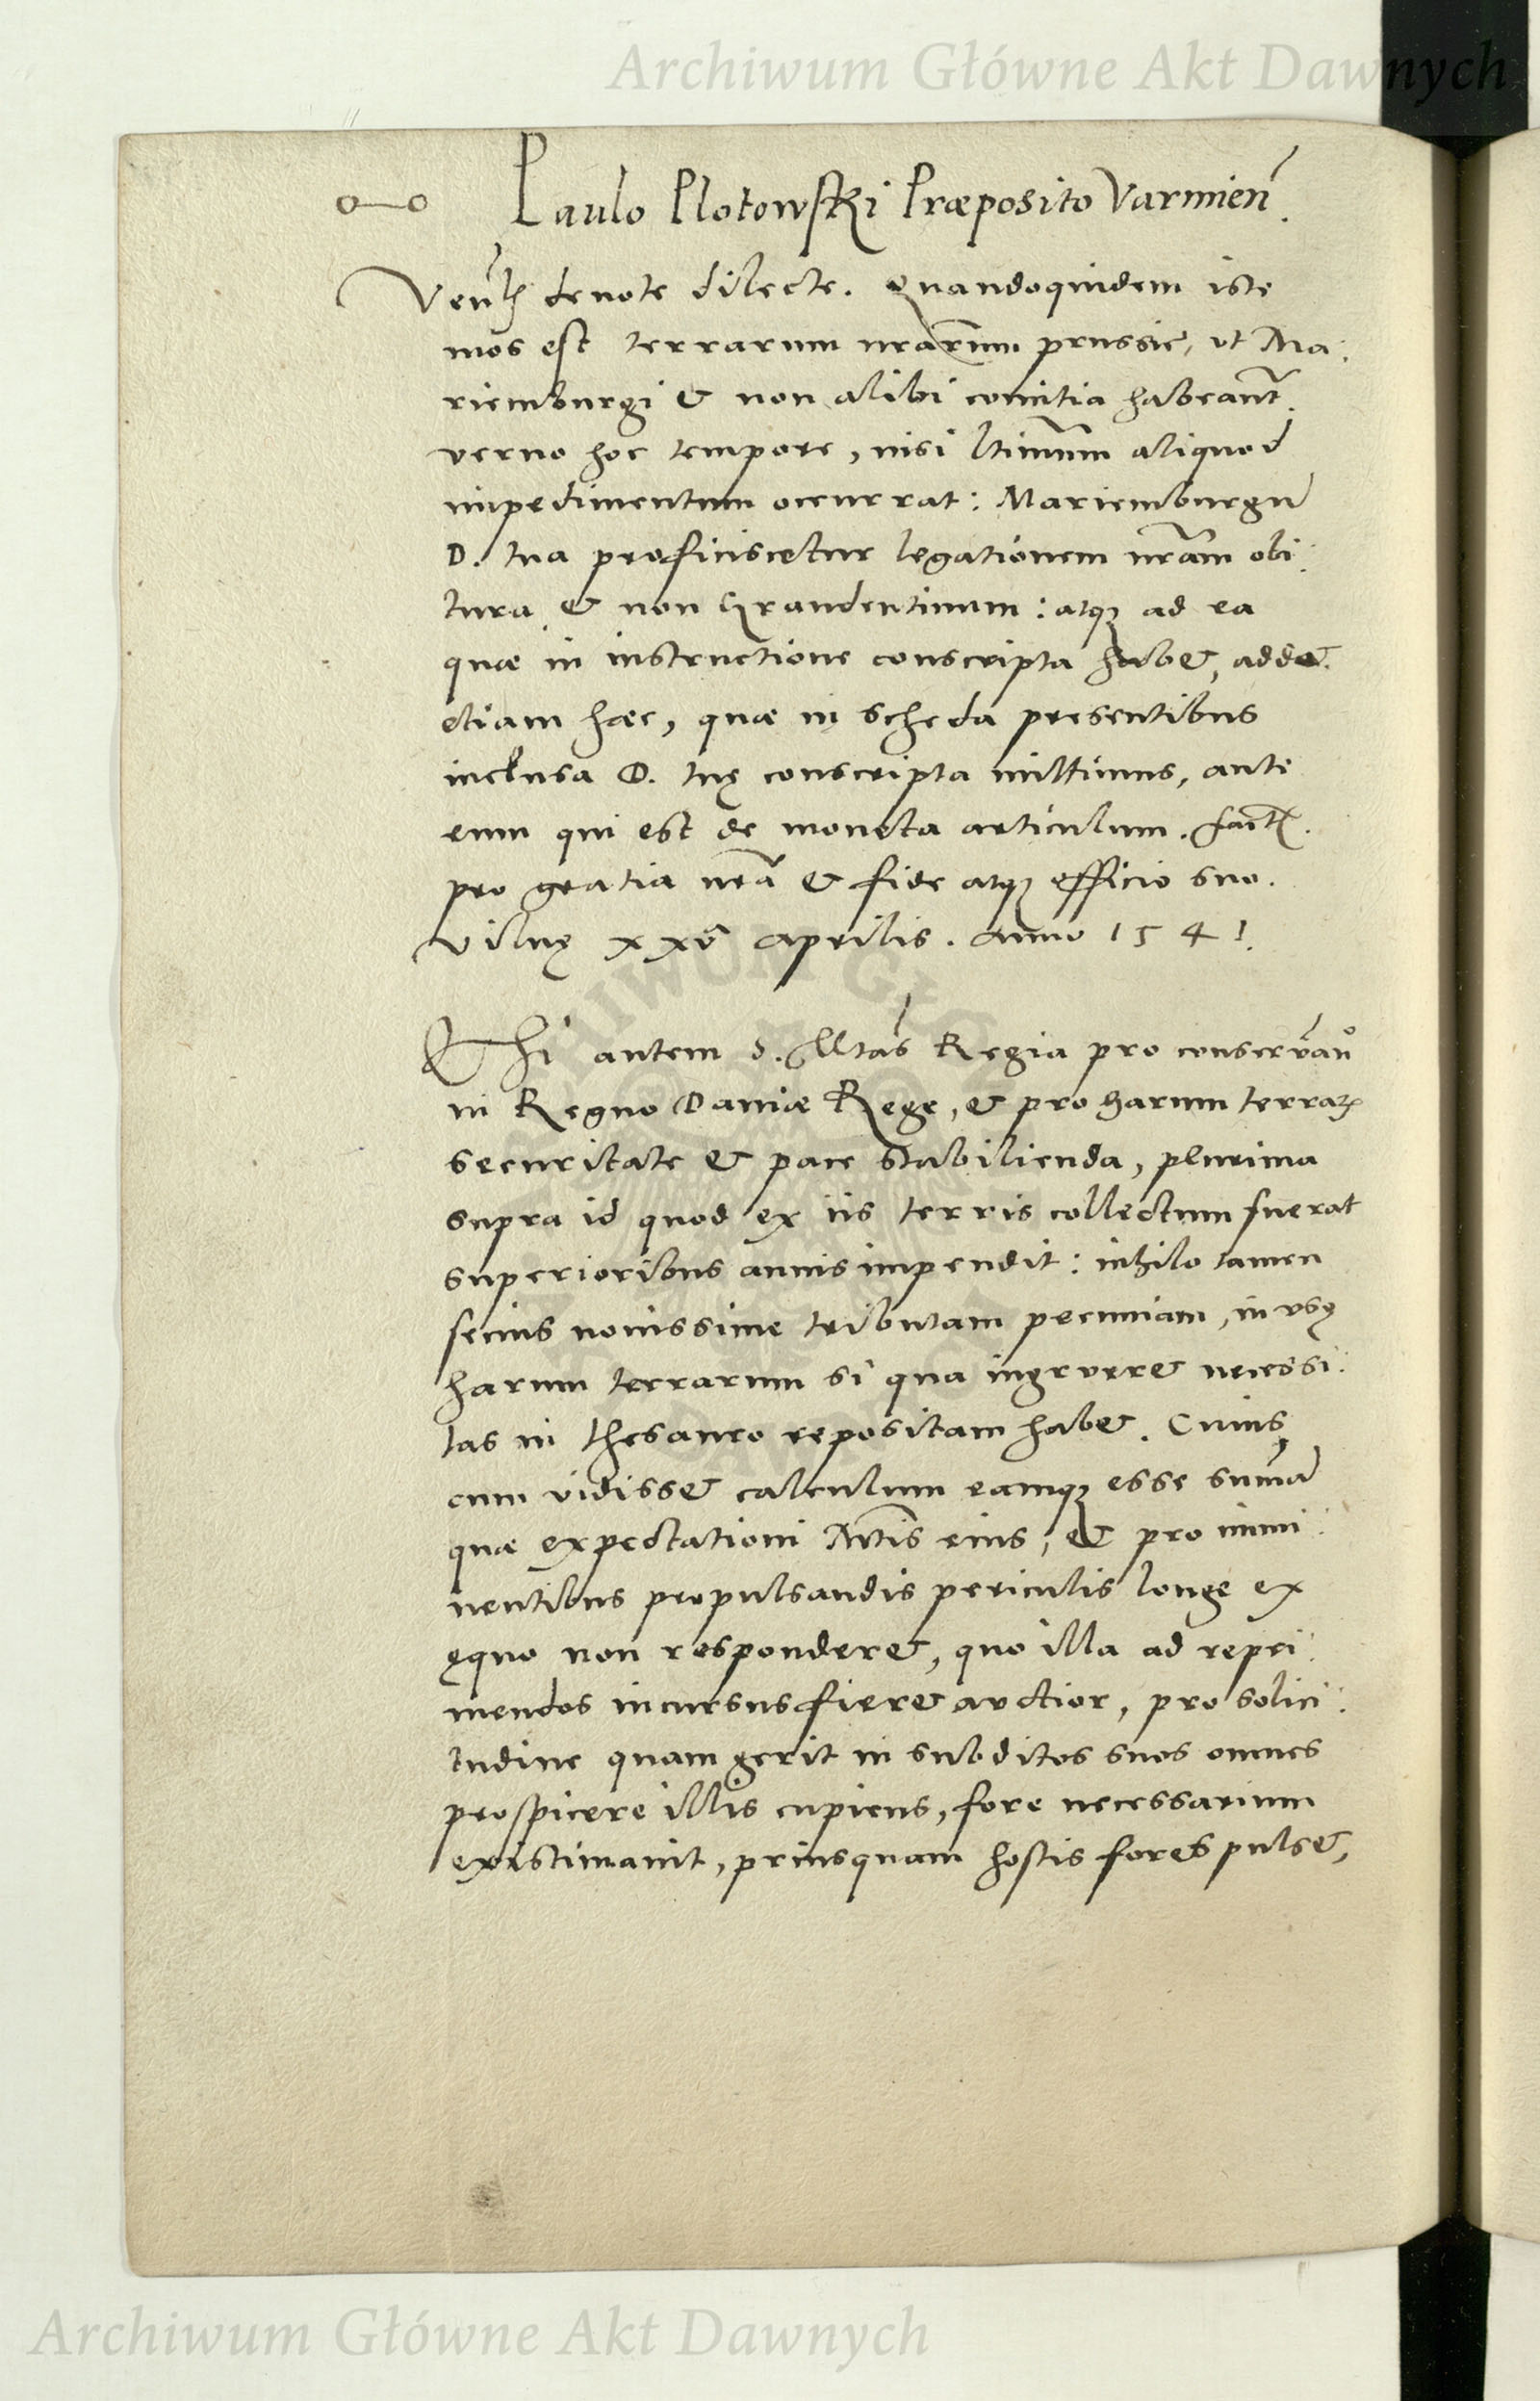 Archiwum Główne Akt Dawnych
Paulo Plotowski Præposito Varmien̄.
Ven̄lis deuote dilecte. Quandoquidem iste
mos est terrarum nrārum prussie, vt Ma:
riemburgi & non alibi comitia habeant̄.
verno hoc tempore, nisi ltimum̄ aliquod
impedimentum occurrat: Mariemburgū
D. tua proficiscetur legationem nrām obi:
tura & non Graudentinum: atqꝫ ad ea
quæ in instructione conscripta habet, addet
etiam hæc, quæ in scheda presentibus
inclusa D. tuę conscripta mittimus, ante
eum qui est de moneta articulum. fact̄.
pro gratia nrā & fide atqꝫ officio suo.
Vilnę xxv Aprilis. Anno 1541.
Etsi autem S. Mtās Regia pro conseruan̄o
in Regno Daniæ Rege, & pro harum terraꝝ
securitate & pace stabilienda, plurima
supra id quod ex iis terris collectum fuerat
superioribus annis impendit: nihilo tamen
secius nouissime tributam pecuniam, in vsꝰ
harum terrarum si qua ingrueret necessi:
tas in thesauro repositam habet. Cuius
cum vidisset calculum eamqꝫ esse sum̄ā
quæ expectationi Mtīs eius, & pro immi:
nentibus propulsandis periculis longe ex
ęquo non responderet, quo illa ad repri:
mendos incursus fieret auctior, pro solici:
tudine quam gerit in subditos suos omnes
prospicere illis cupiens, fore necessarium
existimauit, priusquam hostis fores pulset,
Archiwum Główne Akt Dawnych